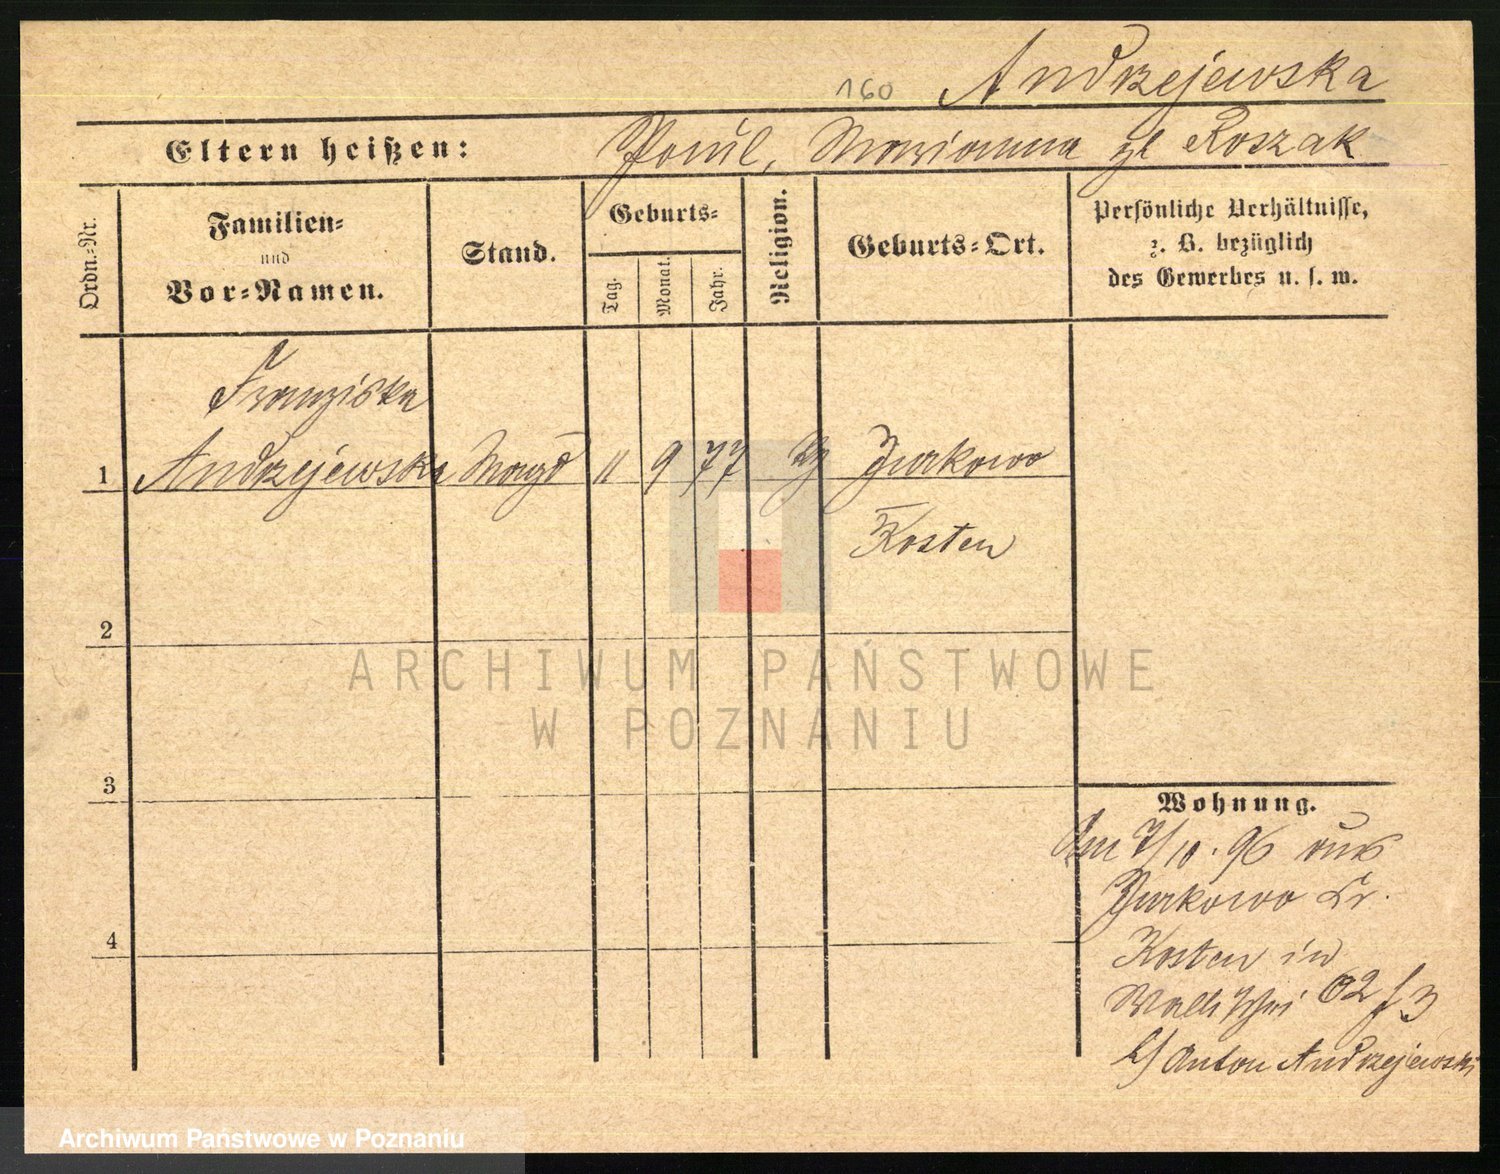 160 Andrzejewska
Eltern heißen: Paul, Marianna gb Roszak
Ordn.-Nr.
Familien-
und
Vor-Namen.
Stand.
Geburts-
Tag.
Monat.
Jahr.
Religion.
Geburts-Ort.
Persönliche Verhältnisse,
z. B. bezüglich
des Gewerbes u. s. w.
Franziska
1 Andrzejewska Magd 11 9 77 Jurkowo
Kosten
2
3
4
Wohnung.
Am 7/10. 96 aus
Jurkowo Kr.
Kosten in
Wallischei 62
b/ Anton Andrzejewski
ARCHIWUM PAŃSTWOWE
W POZNANIU
Archiwum Państwowe w Poznaniu